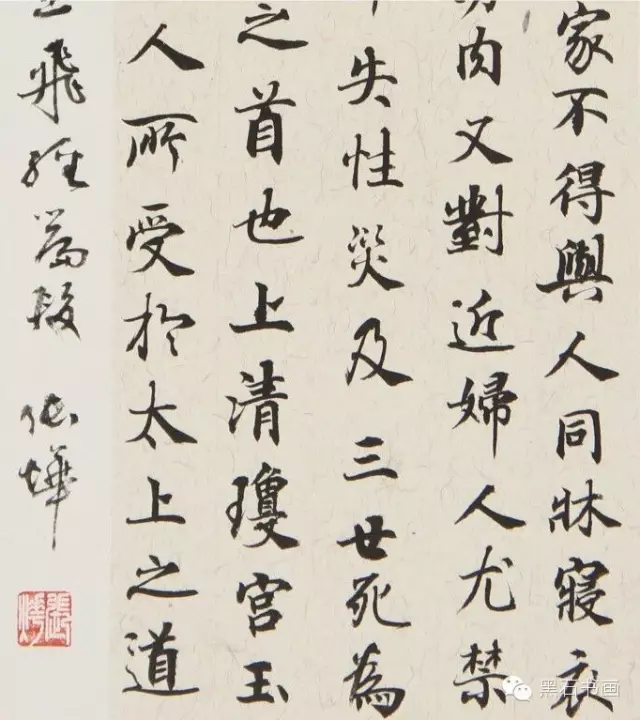 家不得與人同牀寢衣
肉又對近婦人尤禁
失性災及三世死為
之首也上清瓊宮玉
人所受於太上之道
飛經為段 張燁
張燁
黑石书画